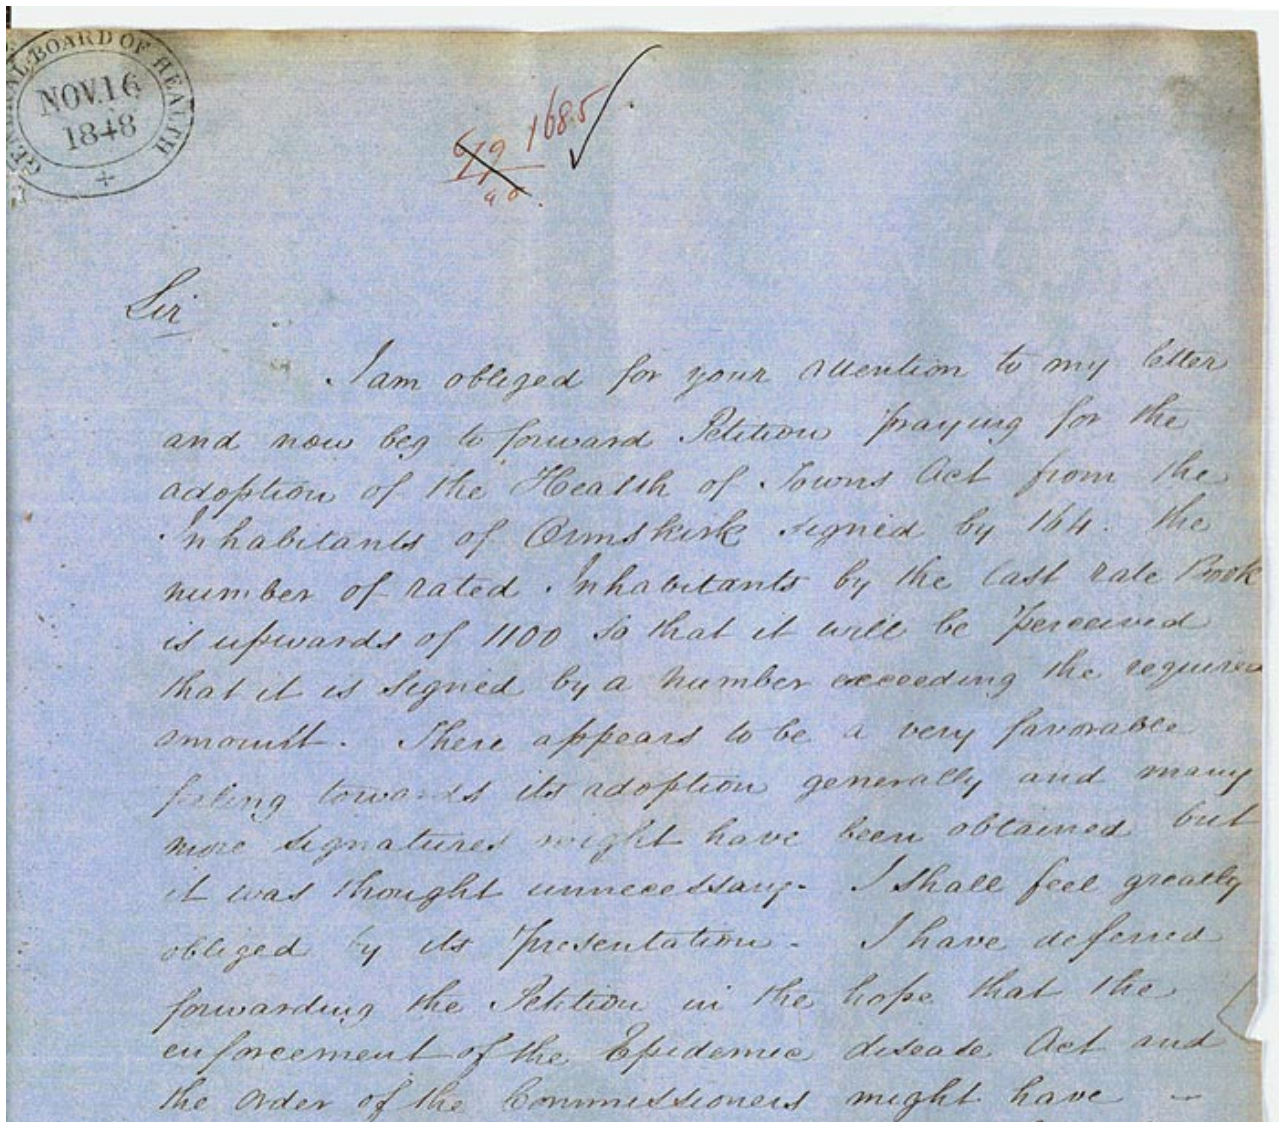 GENERAL BOARD OF HEALTH
NOV. 16
1848
619 1685
Sir
I am obliged for your attention to my letter
and now beg to forward Petition praying for the
adoption of the Health of Towns Act from the
Inhabitants of Ormskirk signed by 164. the
number of rated Inhabitants by the last rate Book
is upwards of 1100 so that it will be perceived
that it is signed by a number exceeding the required
amount. There appears to be a very favorable
feeling towards its adoption generally and many
more signatures might have been obtained but
it was thought unnecessary. I shall feel greatly
obliged by its presentation. I have deferred
forwarding the Petition in the hope that the
enforcement of the Epidemic disease Act and
the order of the Commissioners might have –